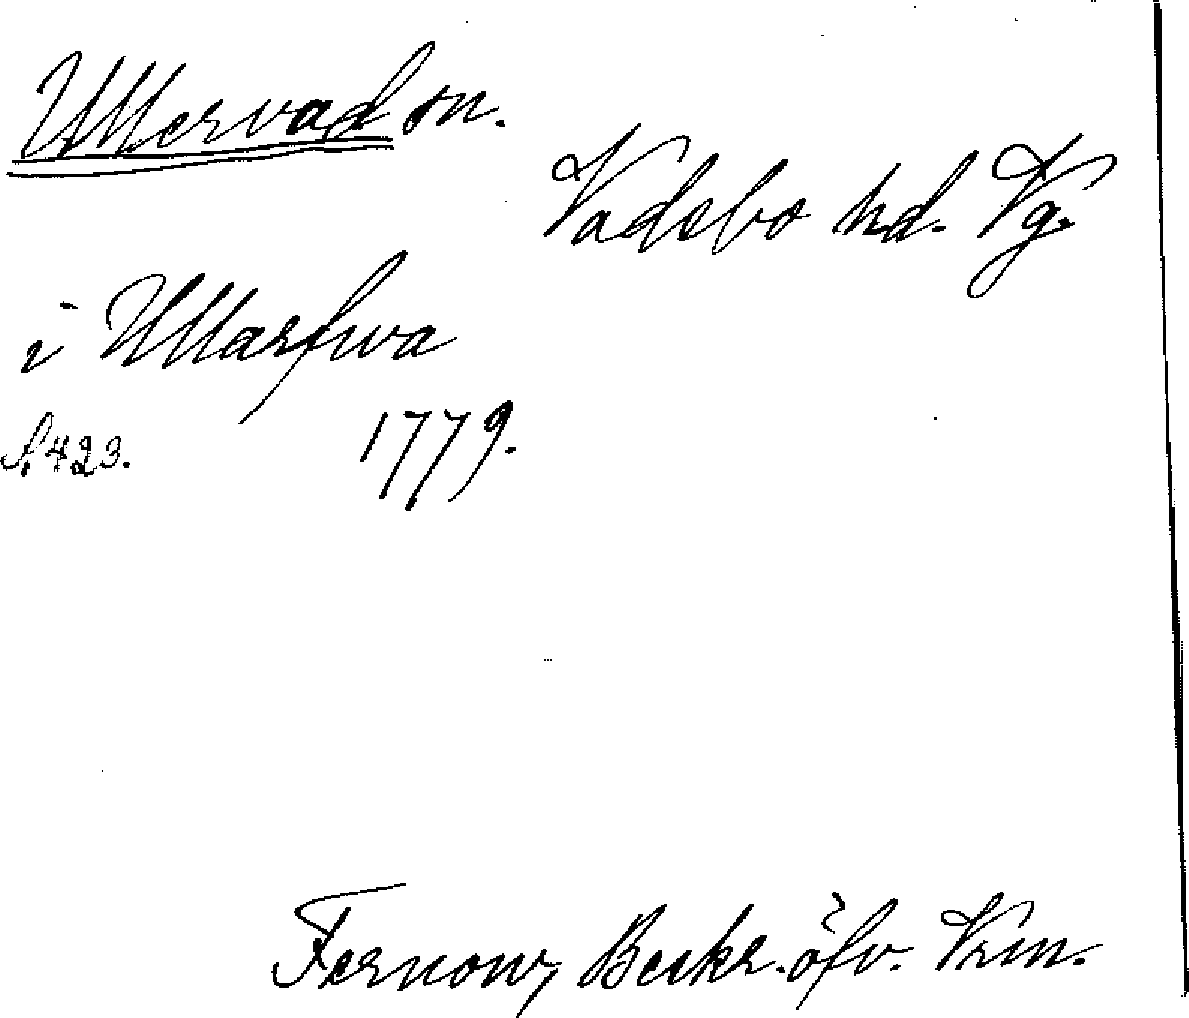 Ullervad sn.
Vadsbo hd. Vg.
i Ullarfwa
s. 423. 1779.
Fernow, Beskr. öfv. Vrm.